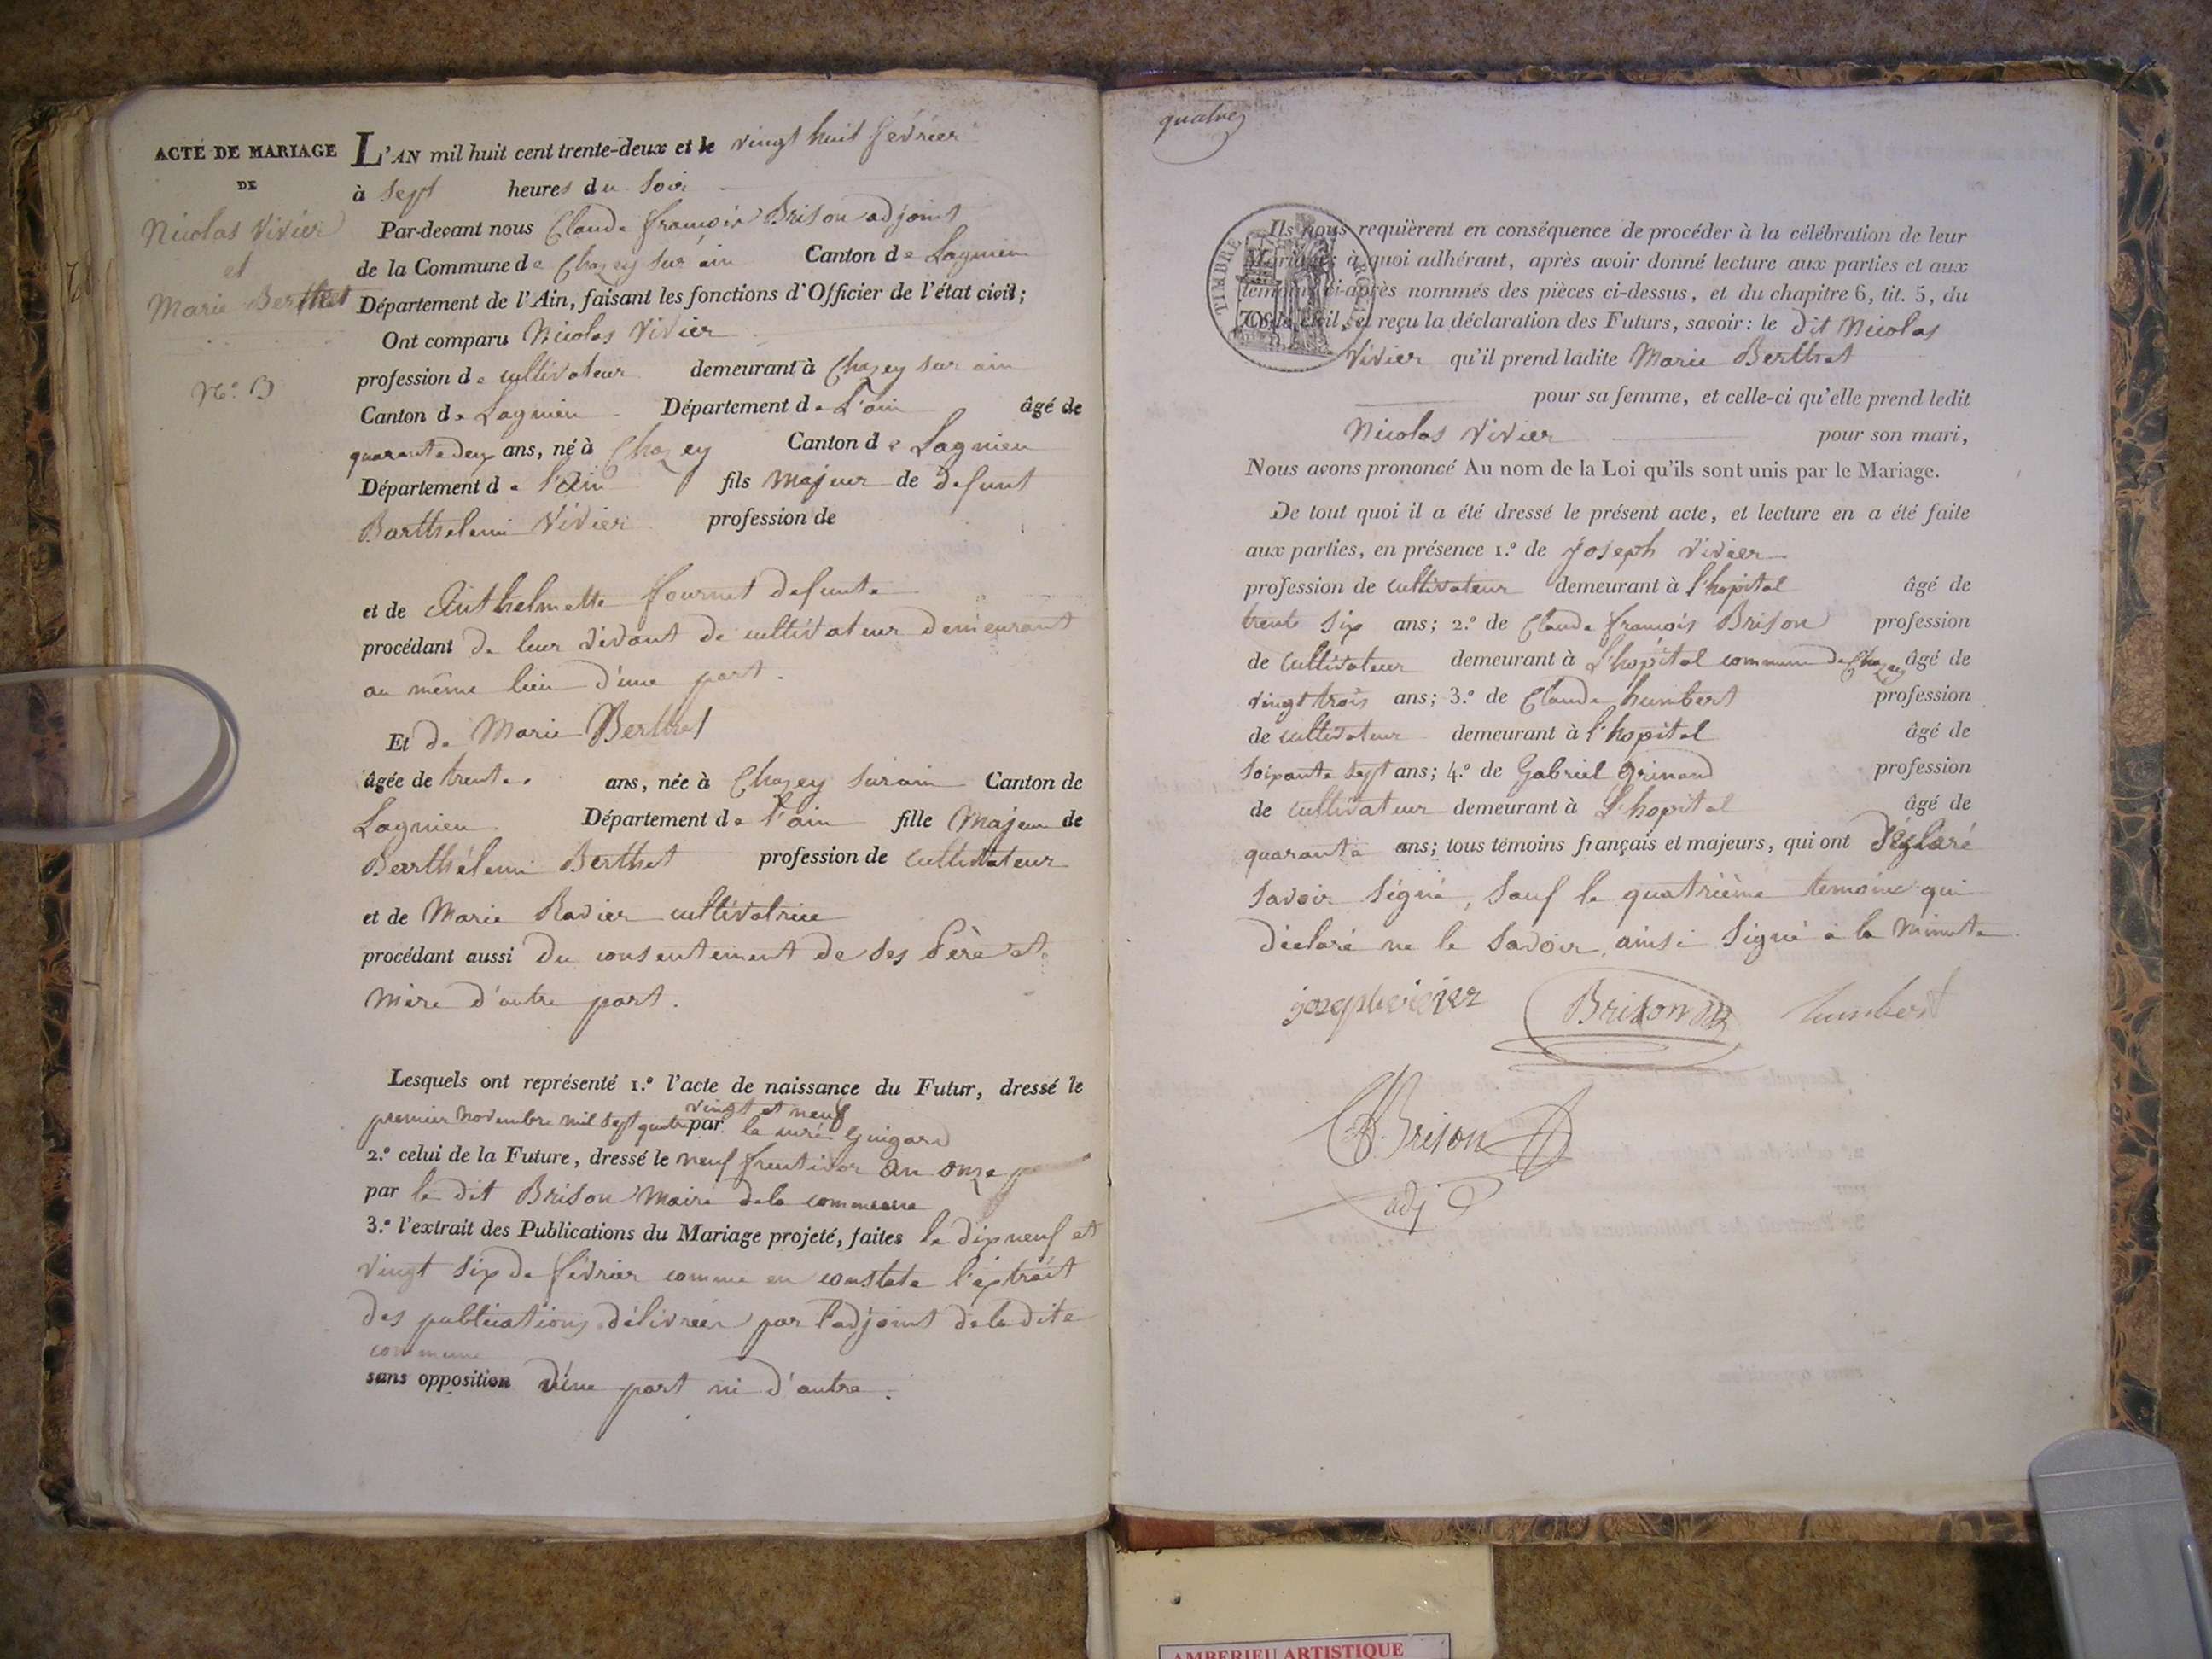 ACTE DE MARIAGE
DE
Nicolas Vivier
et
Marie Berthet
N.º 3
L'AN mil huit cent trente-deux et le vingt huit février
à sept heures du soir
Par-devant nous Claude françois Brison adjoint
de la Commune de Chazey sur ain Canton de Lagnieu
Département de l'Ain, faisant les fonctions d'Officier de l'état civil;
Ont comparu Nicolas Vivier
profession de cultivateur demeurant à Chazey sur ain
Canton de Lagnieu Département de L'ain âgé de
quarante deux ans, né à Chazey Canton de Lagnieu
Département de l'Ain fils majeur de defunt
Barthelemi Vivier profession de
et de Anthelmette fournet defunte
procédant de leur vivant de cultivateur demeurant
au même lieu d'une part.
Et de Marie Berthet
âgée de trente ans, née à Chazey sur ain Canton de
Lagnieu Département de l'ain fille Majeure de
Barthélemi Berthet profession de cultivateur
et de Marie Ravier cultivatrice
procédant aussi du consentement de ses Père et
mère d'autre part.
Lesquels ont représenté 1.º l'acte de naissance du Futur, dressé le
vingt et neuf
premier Novembre mil sept quatre par le curé Guigard
2.º celui de la Future, dressé le neuf fructidor an onze
par le dit Brison Maire de la commune
3.º l'extrait des Publications du Mariage projeté, faites le dix neuf et
vingt six de février comme en constate l'extrait
des publications délivrées par l'adjoint de la dite
commune
sans opposition d'une part ni d'autre.
quatre
TIMBRE ROYAL
Ils nous requièrent en conséquence de procéder à la célébration de leur
Mariage; à quoi adhérant, après avoir donné lecture aux parties et aux
témoins ci-après nommés des pièces ci-dessus, et du chapitre 6, tit. 5, du
Code civil, et reçu la déclaration des Futurs, savoir: le dit Nicolas
Vivier qu'il prend ladite Marie Berthet
pour sa femme, et celle-ci qu'elle prend ledit
Nicolas Vivier pour son mari,
Nous avons prononcé Au nom de la Loi qu'ils sont unis par le Mariage.
De tout quoi il a été dressé le présent acte, et lecture en a été faite
aux parties, en présence 1.º de Joseph Vivier
profession de cultivateur demeurant à l'hopital âgé de
trente six ans; 2.º de Claude françois Brison profession
de cultivateur demeurant à L'hopital commune de Chazey âgé de
vingt trois ans; 3.º de Claude humbert profession
de cultivateur demeurant à l'hopital âgé de
soixante sept ans; 4.º de Gabriel Grinand profession
de cultivateur demeurant à L'hopital âgé de
quarante ans; tous témoins français et majeurs, qui ont déclaré
savoir signé, sauf le quatrième temoin qui
déclaré ne le savoir ainsi signé à la Minute
joseph vivier Brison humbert
Brison
adj
AMBERIEU ARTISTIQUE